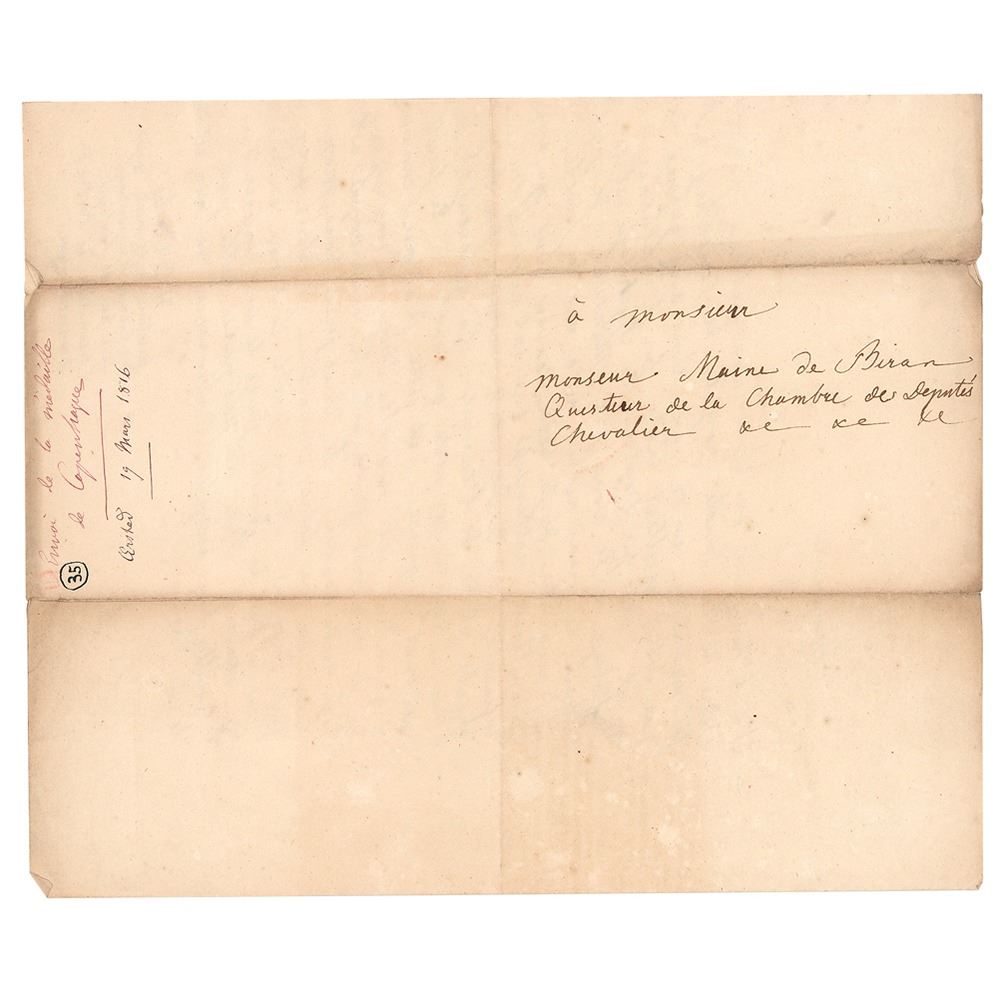 à monsieur
monseur Maine de Biran
Questeur de la Chambre de Deputés
Chevalier &c &c &c
Envoi de la médaille
de Copenhague
Œrsted 19 Mars 1816
35